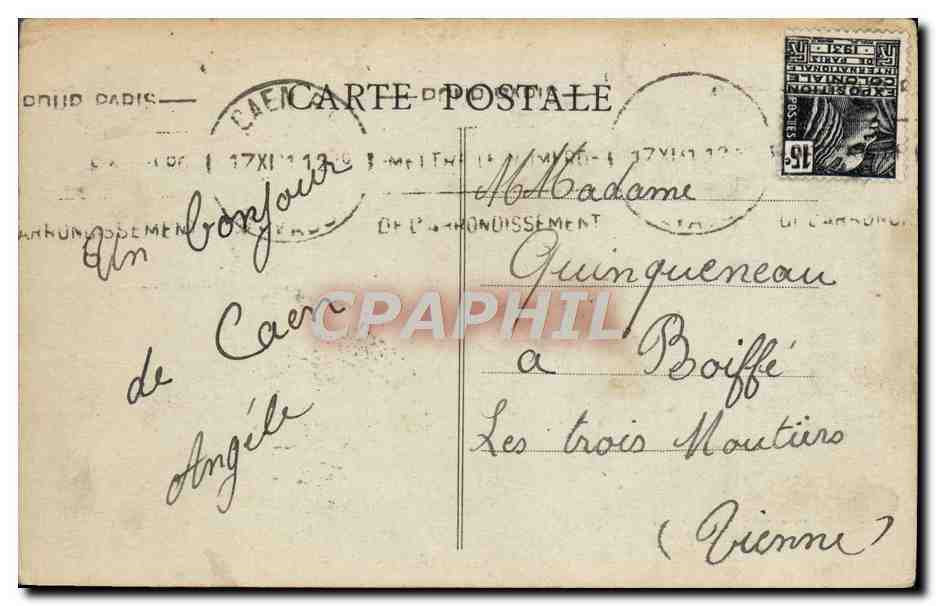 CARTE POSTALE
POUR PARIS
CAEN
17 XI
CALVADOS
METTRE LE NUMERO
DE L'ARRONDISSEMENT
EXPOSITION
COLONIALE
INTERNATIONALE
DE PARIS
1931
POSTES
15c
Un bonjour
de Caen
Angèle
Madame
Quinqueneau
a Boiffé
Les trois Moutiers
(Vienne)
CPAPHIL